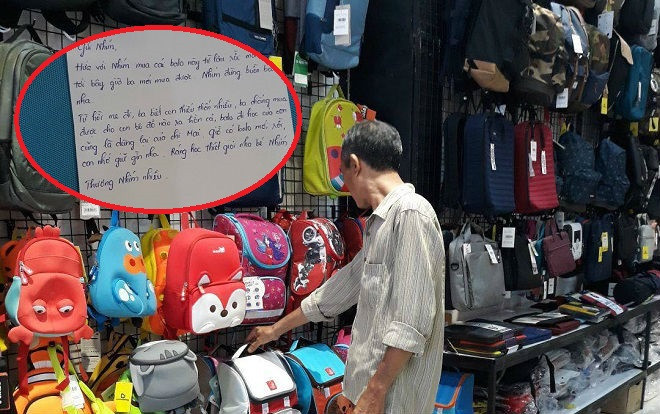 Gửi Nhím,
Hứa với Nhím mua cái balo này từ lâu rồi mà
tới bây giờ ba mới mua được. Nhím đừng buồn ba
nha.
Từ hồi mẹ đi, ba biết con thiếu thốn nhiều, ba không mua
được cho con bộ đồ nào ra hồn cả, balo đi học của con
cũng là dùng lại của chị Mai. Giờ có balo mới, rồi,
con nhớ giữ gìn nha. Ráng học thật giỏi nha bé Nhím
Thương Nhím nhiều.